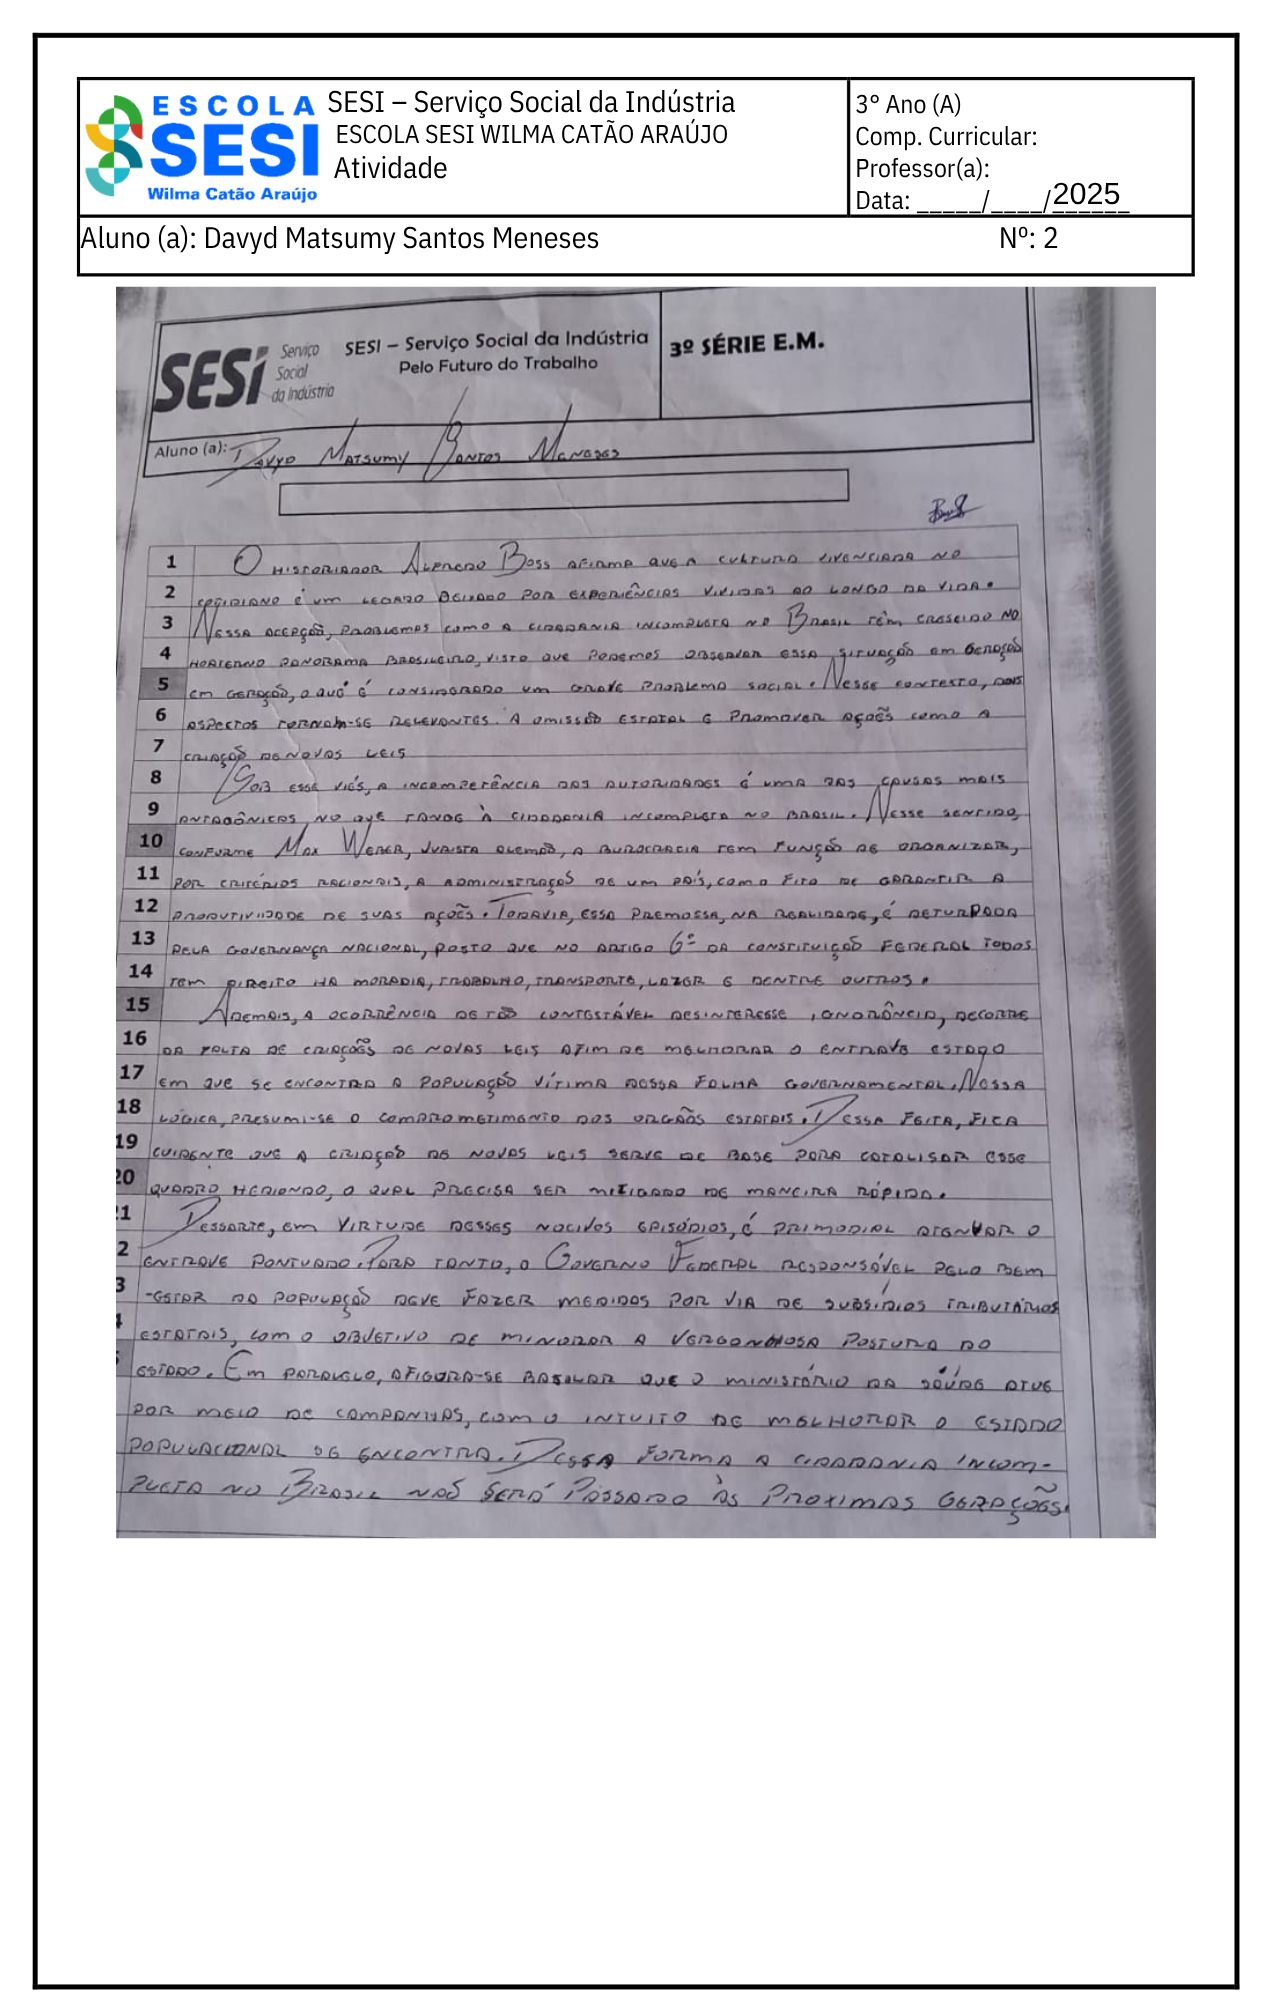 ESCOLA
SESI
Wilma Catão Araújo
SESI – Serviço Social da Indústria
ESCOLA SESI WILMA CATÃO ARAÚJO
Atividade
3° Ano (A)
Comp. Curricular:
Professor(a):
Data: _____/____/2025
Aluno (a): Davyd Matsumy Santos Meneses Nº: 2
SESI Serviço Social da Indústria
SESI – Serviço Social da Indústria
Pelo Futuro do Trabalho
3º SÉRIE E.M.
Aluno (a): Davyd Matsumy Santos Meneses
1 O historiador Alfredo Boss afirma que a cultura vivenciada no
2 cotidiano é um legado deixado por experiências vividas ao longo da vida.
3 Nessa acepção, problemas como a cidadania incompleta no Brasil têm crescido no
4 hodierno panorama brasileiro, visto que podemos observar essa situação em geração
5 em geração, o que é considerado um grave problema social. Nesse contexto, dois
6 aspectos tornam-se relevantes. A omissão estatal e promover ações como a
7 criação de novas leis
8 Sob esse viés, a incompetência das autoridades é uma das causas mais
9 antagônicas, no que tange à cidadania incompleta no Brasil. Nesse sentido,
10 conforme Max Weber, jurista alemão, a burocracia tem função de organizar,
11 por critérios racionais, a administração de um país, com o fito de garantir a
12 produtividade de suas ações. Todavia, essa premossa, na realidade, é deturpada
13 pela governança nacional, posto que no artigo 6º da Constituição Federal todos
14 tem direito ha moradia, trabalho, transporte, lazer e dentre outros.
15 Ademais, a ocorrência de tão contestável desinteresse, , decorre
16 da falta de criações de novas leis afim de melhorar o entrave estado
17 em que se encontra a população vítima dessa falha governamental. Nessa
18 lógica, presumi-se o comprometimento dos orgãos estatais. Dessa feita, fica
19 evidente que a criação de novas leis serve de base para catalisar esse
20 quadro hediondo, o qual precisa ser mitigado de maneira rápida.
21 Dessarte, em virtude desses nocivos episódios, é primodial atenuar o
2 entrave pontuado. Para tanto, o Governo Federal responsável pelo bem
3 -estar da população deve fazer medidas por via de subsídios tributários
4 estatais, com o objetivo de minorar a vergonhosa postura do
5 estado. Em paralelo, afigura-se basilar que o ministério da saúde atue
por meio de campanhas, com o intuito de melhorar o estado
populacional se encontra. Dessa forma a cidadania incom-
pleta no Brasil não será passado às proximas gerações.